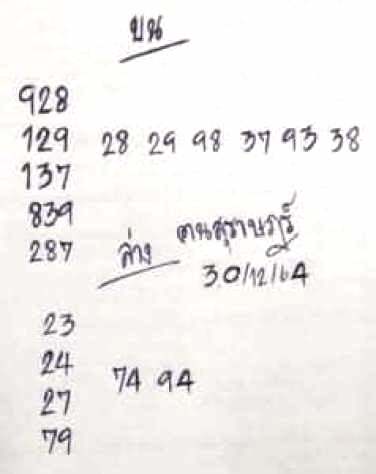 บน
928
129 28 29 98 37 93 38
137
839
287 ล่าง คนสุราษฎร์
30/12/64
23
24
74 94
27
79